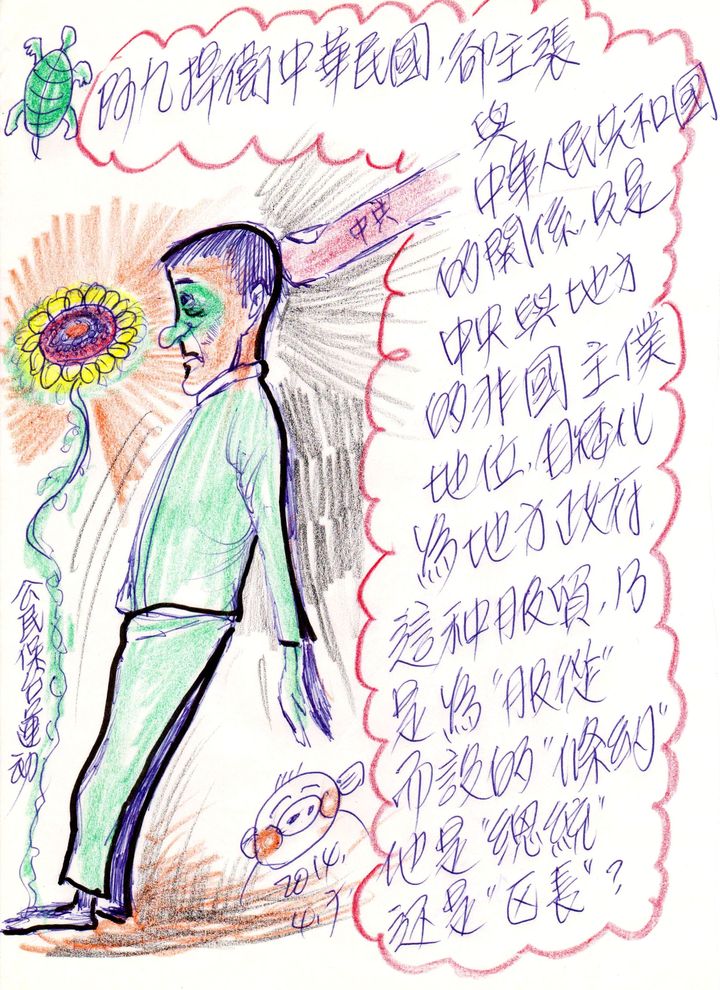 阿九捍衛中華民國，卻主張
與
中華人民共和國
的關係，只是
中央與地方
的非國主僕
地位，自矮化
為地方政府，
這种服貿，乃
是為"服從"
而設的"條約"
他是"總統"
还是"区長"？
中共
公民保台運动
2014.
4.